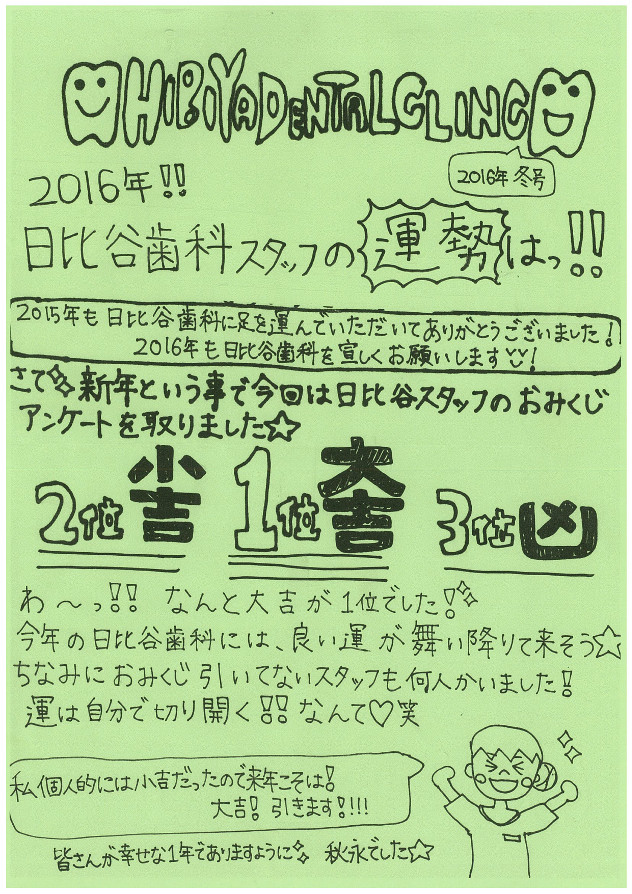 HIBIYADENTALCLINC
2016年 冬号
2016年!!
日比谷歯科スタッフの運勢はっ!!
2015年も日比谷歯科に足を運んでいただいてありがとうございました!
2016年も日比谷歯科を宜しくお願いします!
さて新年という事で今回は日比谷スタッフのおみくじ
アンケートを取りました☆
2位 小吉 1位 大吉 3位 凶
わ〜っ!! なんと大吉が1位でした!
今年の日比谷歯科には、良い運が舞い降りて来そう☆
ちなみにおみくじ引いてないスタッフも何人かいました!
運は自分で切り開く!! なんて♡笑
私個人的には小吉だったので来年こそは!
大吉! 引きます!!!!
皆さんが幸せな1年でありますように 秋永でした☆